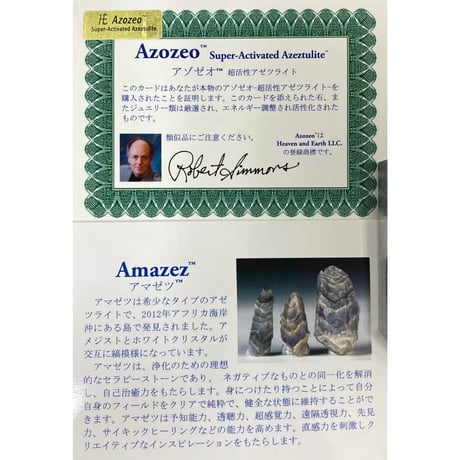 HE Azozeo™
Super-Activated Azeztulite™
Azozeo™ Super-Activated Azeztulite™
アゾゼオ™ 超活性アゼツライト
このカードはあなたが本物のアゾゼオ-超活性アゼツライト-を
購入されたことを証明します。このカードを添えられた石、ま
たジュエリー類は厳選され、エネルギー調整され活性化された
ものです。
類似品にご注意ください。
Azozeo™は
Heaven and Earth LLC.
の登録商標です。
Robert Simmons
Amazez™
アマゼツ™
アマゼツは希少なタイプのアゼ
ツライトで、2012年アフリカ海岸
沖にある島で発見されました。ア
メジストとホワイトクリスタルが
交互に縞模様になっています。
アマゼツは、浄化のための理想
的なセラピーストーンであり、 ネガティブなものとの同一化を解消
し、自己治癒力をもたらします。身につけたり持つことによって自分
自身のフィールドをクリアで純粋で、健全な状態に維持することがで
きます。アマゼツは予知能力、透聴力、超感覚力、遠隔透視力、先見
力、サイキックヒーリングなどの能力を高めます。直感力を刺激しク
リエイティブなインスピレーションをもたらします。